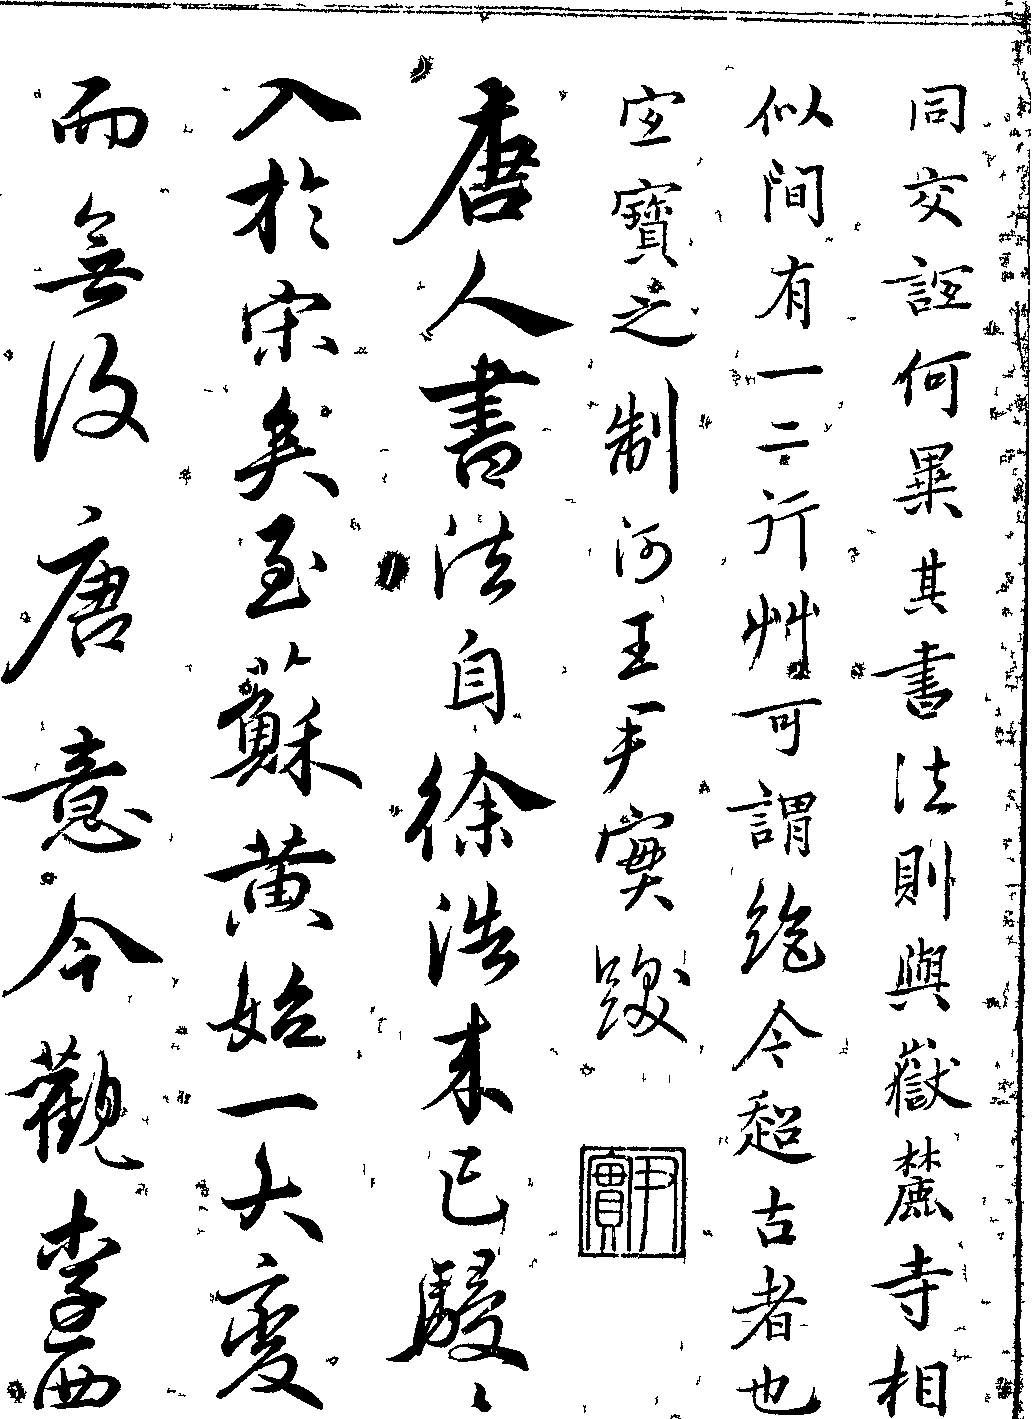 同交誣何畢其書法則與嶽麓寺相
似間有一二行艸可謂絶今超古者也
宜寶之制河王尹實跋
唐人書法自徐浩來已駸〻
入於宋矣至蘇黃始一大變
而無復唐意今觀李西
尹實